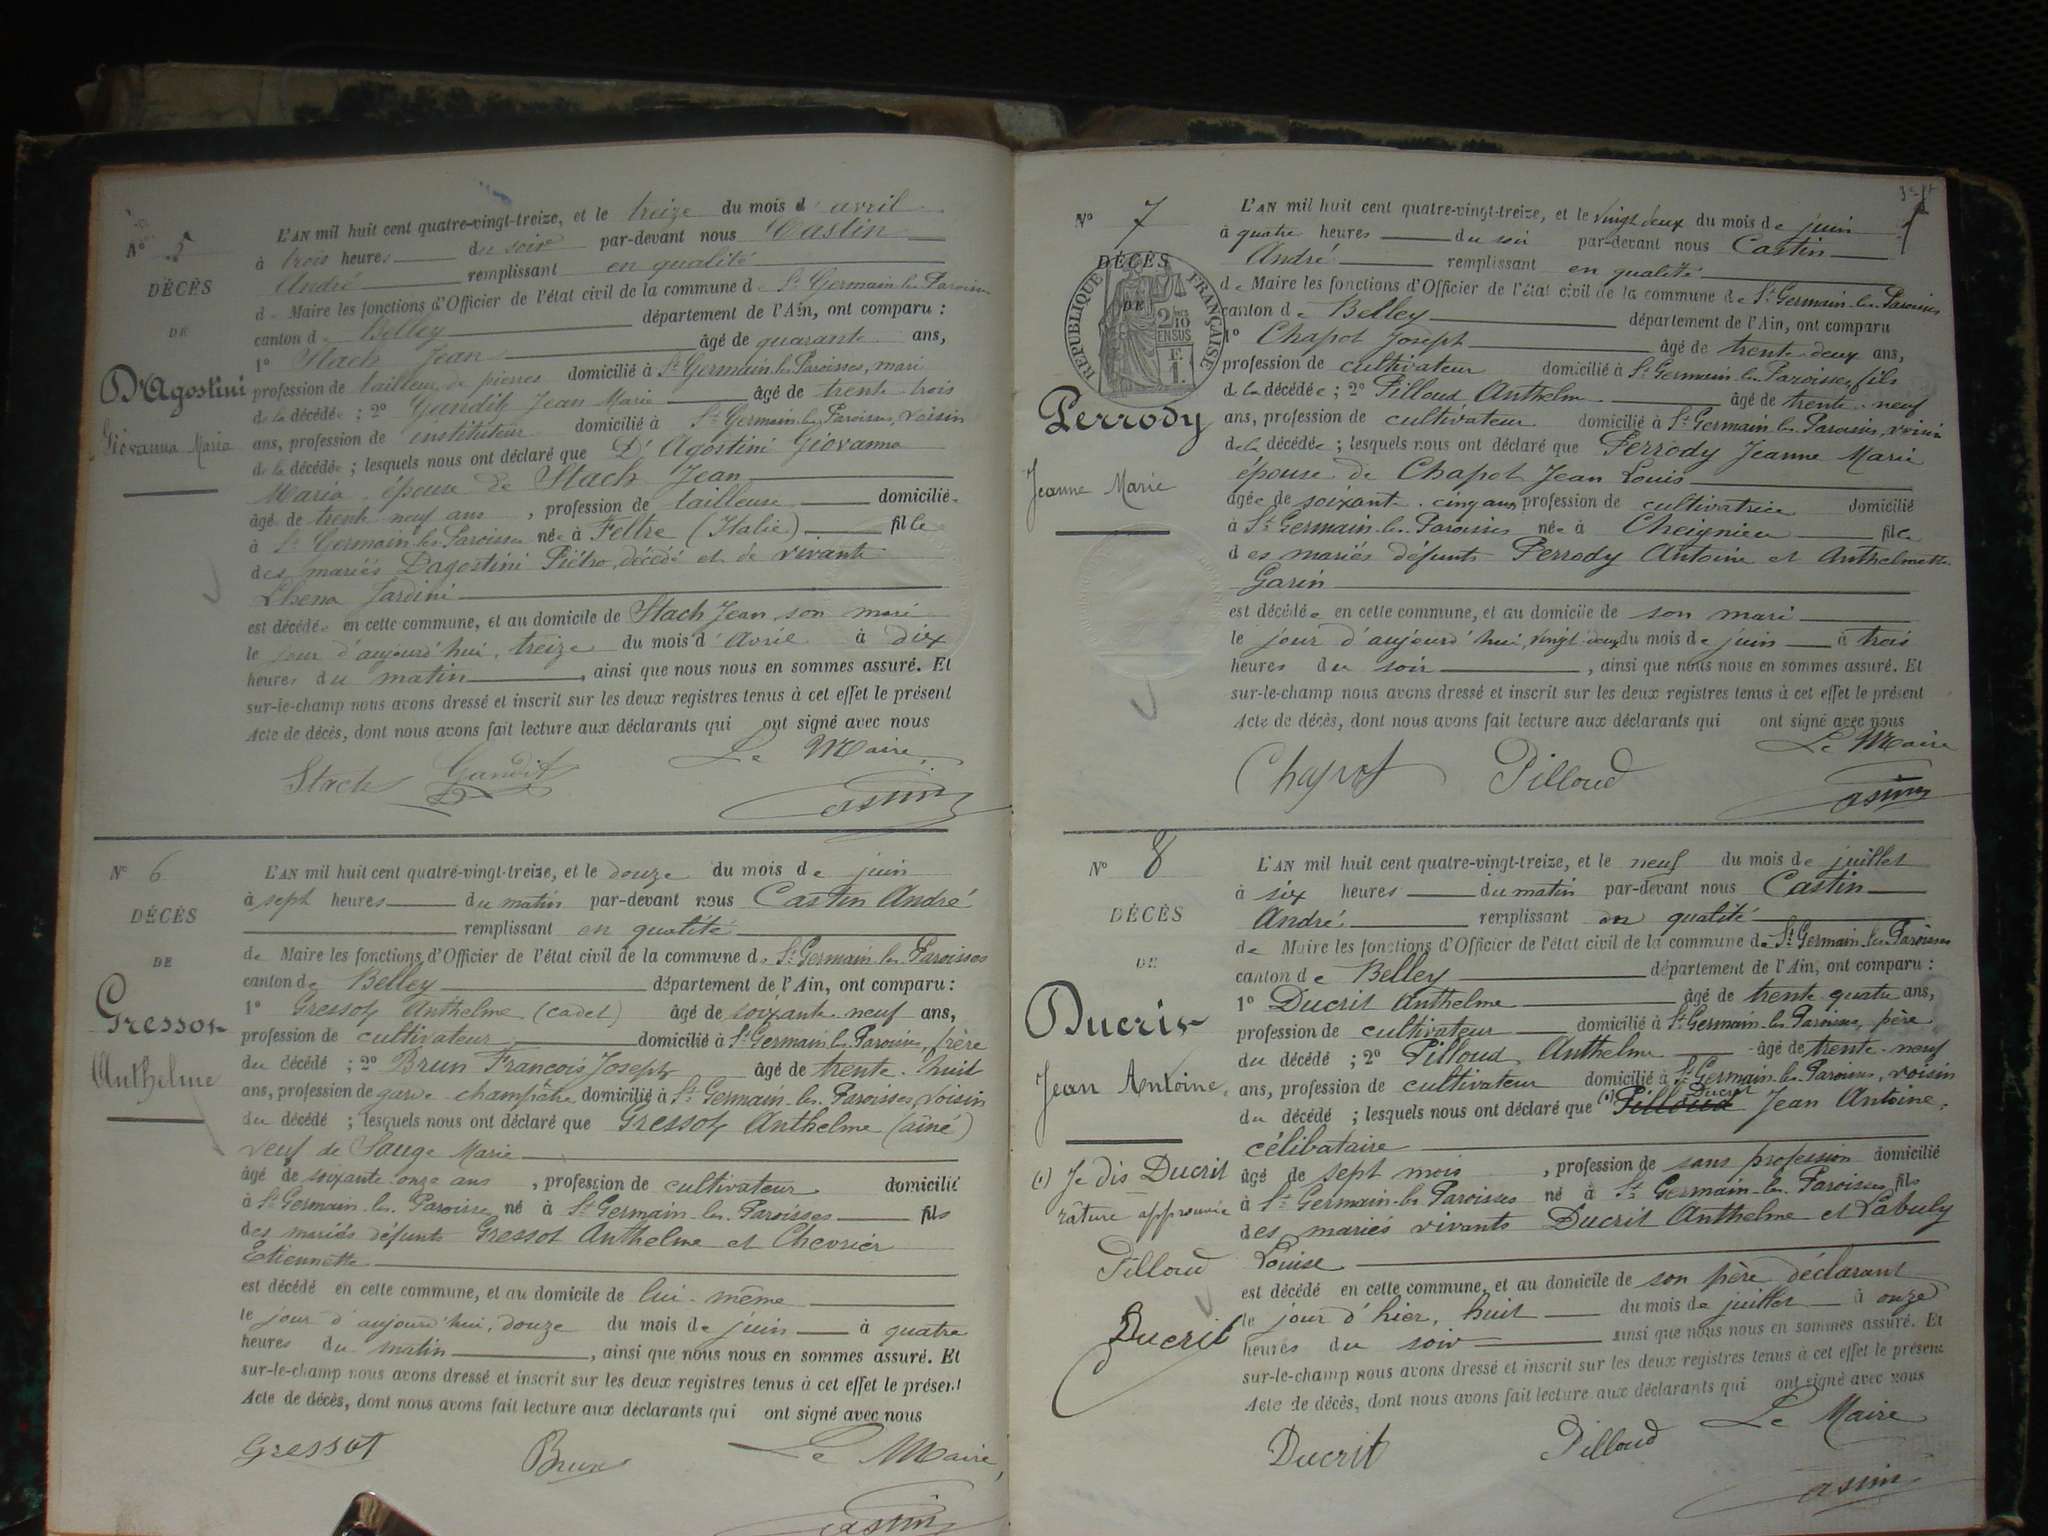 N° 5
DÉCÈS
DE
D'Agostini
Giovanna Maria
L'AN mil huit cent quatre-vingt-treize, et le treize du mois d'avril
à trois heures du soir par-devant nous Castin
André remplissant en qualité
de Maire les fonctions d'Officier de l'état civil de la commune de St Germain-les-Paroisses
canton de Belley département de l'Ain, ont comparu :
1° Stach Jean âgé de quarante ans,
profession de tailleur de pierres domicilié à St Germain-les-Paroisses, mari
de la décédée ; 2° Gandit Jean Marie âgé de trente trois
ans, profession de instituteur domicilié à St Germain-les-Paroisses, voisin
de la décédée ; lesquels nous ont déclaré que D'Agostini Giovanna
Maria, épouse de Stach Jean
âgé de trente neuf ans, profession de tailleuse domiciliée
à St Germain-les-Paroisses née à Feltre (Italie) fille
des mariés Dagostini Piétro, décédé et de vivante
Lhena Jardini
est décédée en cette commune, et au domicile de Stach Jean son mari
le jour d'aujourd'hui, treize du mois d'Avril à dix
heures du matin, ainsi que nous nous en sommes assuré. Et
sur-le-champ nous avons dressé et inscrit sur les deux registres tenus à cet effet le présent
Acte de décès, dont nous avons fait lecture aux déclarants qui ont signé avec nous
Le Maire,
Stach Gandit Castin
N° 6
DÉCÈS
DE
Gressot
Anthelme
L'AN mil huit cent quatre-vingt-treize, et le douze du mois de juin
à sept heures du matin par-devant nous Castin André
remplissant en qualité
de Maire les fonctions d'Officier de l'état civil de la commune de St Germain-les-Paroisses
canton de Belley département de l'Ain, ont comparu :
1° Gressot Anthelme (cadet) âgé de soixante neuf ans,
profession de cultivateur domicilié à St Germain-les-Paroisses, frère
du décédé ; 2° Brun François Joseph âgé de trente-huit
ans, profession de garde-champêtre domicilié à St Germain-les-Paroisses, voisin
du décédé ; lesquels nous ont déclaré que Gressot Anthelme (aîné)
veuf de Sauge Marie
âgé de soixante-onze ans, profession de cultivateur domicilié
à St Germain-les-Paroisses né à St Germain-les-Paroisses fils
des mariés défunts Gressot Anthelme et Chevrier
Etiennette
est décédé en cette commune, et au domicile de lui-même
le jour d'aujourd'hui, douze du mois de juin à quatre
heures du matin, ainsi que nous nous en sommes assuré. Et
sur-le-champ nous avons dressé et inscrit sur les deux registres tenus à cet effet le présent
Acte de décès, dont nous avons fait lecture aux déclarants qui ont signé avec nous
Gressot Brun Le Maire,
Castin
N° 7
DÉCÈS
DE
RÉPUBLIQUE FRANÇAISE
2/10 EN SUS
Perrody
Jeanne Marie
L'AN mil huit cent quatre-vingt-treize, et le vingt deux du mois de juin
à quatre heures du soir par-devant nous Castin
André remplissant en qualité
de Maire les fonctions d'Officier de l'état civil de la commune de St Germain-les-Paroisses
canton de Belley département de l'Ain, ont comparu
1° Chapot Joseph âgé de trente-deux ans,
profession de cultivateur domicilié à St Germain-les-Paroisses, fils
de la décédée ; 2° Pilloud Anthelme âgé de trente-neuf
ans, profession de cultivateur domicilié à St Germain-les-Paroisses, voisin
de la décédée ; lesquels nous ont déclaré que Perrody Jeanne Marie
épouse de Chapot Jean Louis
âgée de soixante-cinq ans, profession de cultivatrice domicilié
à St Germain-les-Paroisses née à Cheignieu fille
des mariés défunts Perrody Antoine et Anthelmette
Garin
est décédée en cette commune, et au domicile de son mari
le jour d'aujourd'hui, vingt-deux du mois de juin à trois
heures du soir, ainsi que nous nous en sommes assuré. Et
sur-le-champ nous avons dressé et inscrit sur les deux registres tenus à cet effet le présent
Acte de décès, dont nous avons fait lecture aux déclarants qui ont signé avec nous
Le Maire
Chapot Pilloud Castin
N° 8
DÉCÈS
DE
Ducrit
Jean Antoine
(1) Je dis Ducrit
rature approuvée
Pilloud
Ducrit
L'AN mil huit cent quatre-vingt-treize, et le neuf du mois de juillet
à six heures du matin par-devant nous Castin
André remplissant en qualité
de Maire les fonctions d'Officier de l'état civil de la commune de St Germain-les-Paroisses
canton de Belley département de l'Ain, ont comparu :
1° Ducrit Anthelme âgé de trente quatre ans,
profession de cultivateur domicilié à St Germain-les-Paroisses, père
du décédé ; 2° Pilloud Anthelme âgé de trente-neuf
ans, profession de cultivateur domicilié à St Germain-les-Paroisses, voisin
du décédé ; lesquels nous ont déclaré que (1) Pilloud Ducrit Jean Antoine,
célibataire
âgé de sept mois, profession de sans profession domicilié
à St Germain-les-Paroisses né à St Germain-les-Paroisses, fils
des mariés vivants Ducrit Anthelme et Labuly
Louise
est décédé en cette commune, et au domicile de son père déclarant
le jour d'hier, huit du mois de juillet à onze
heures du soir ainsi que nous nous en sommes assuré. Et
sur-le-champ nous avons dressé et inscrit sur les deux registres tenus à cet effet le présent
Acte de décès, dont nous avons fait lecture aux déclarants qui ont signé avec nous
Le Maire
Ducrit Pilloud Castin